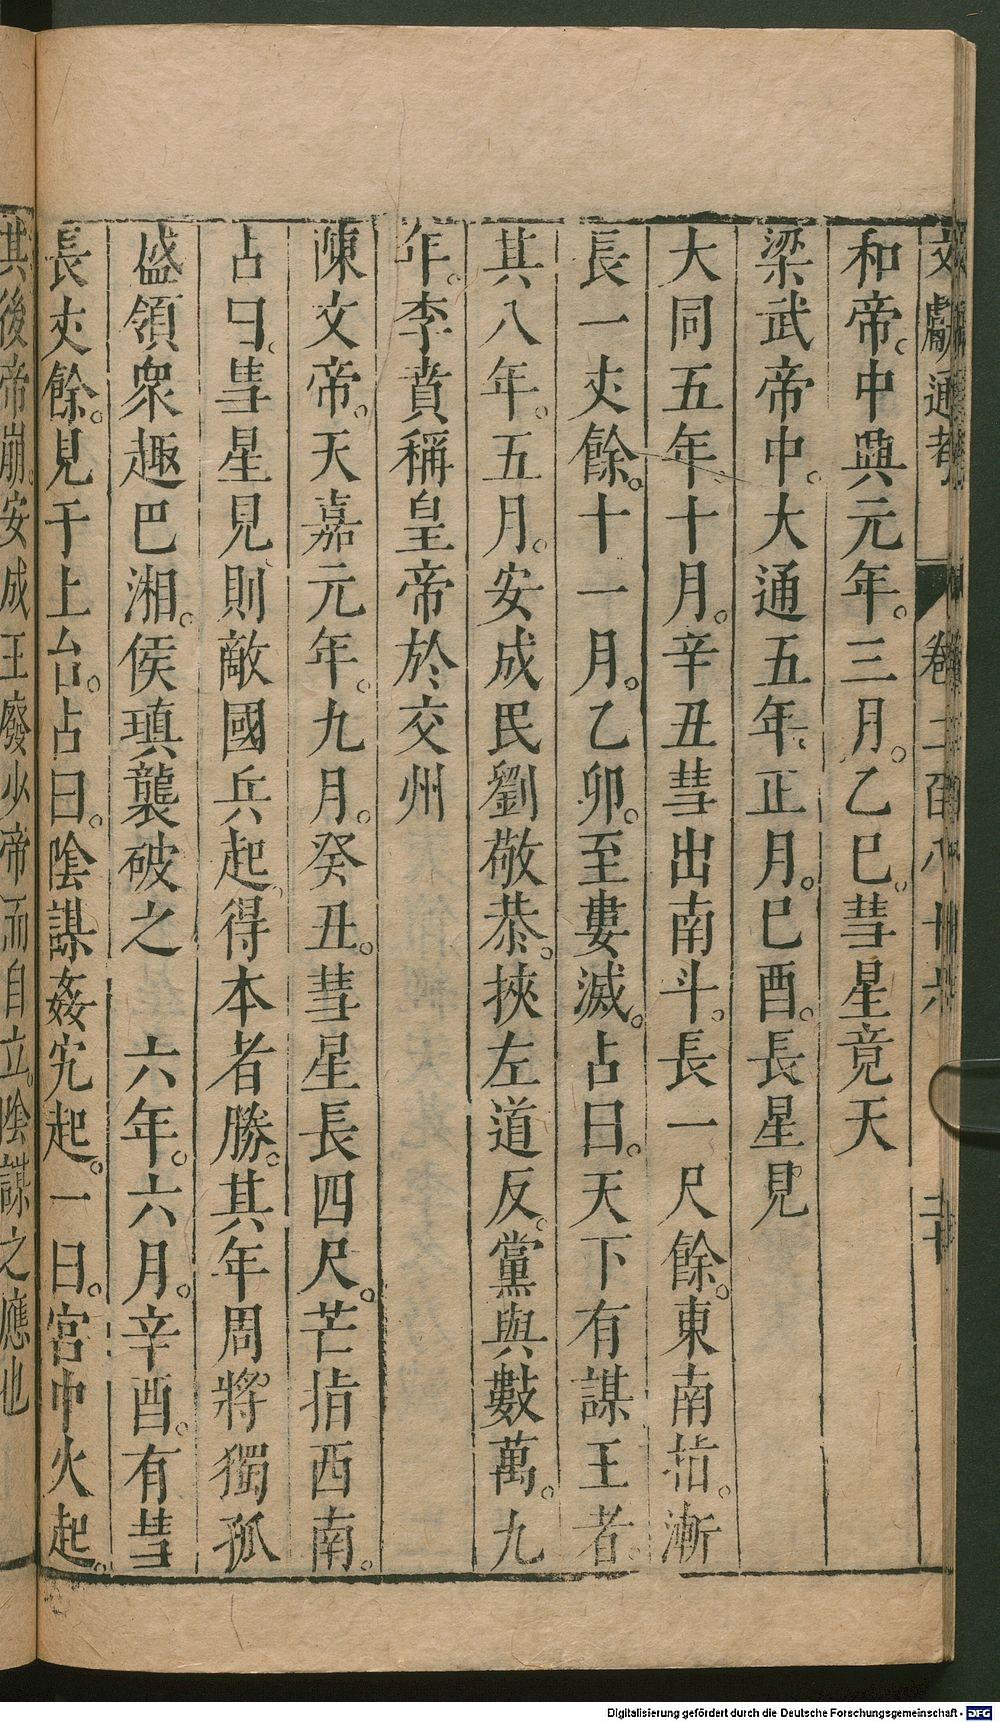 文獻通考 卷二百八十六
和帝。中興元年。三月。乙巳。彗星竟天
梁武帝中。大通五年。正月。已酉。長星見
大同五年十月。辛丑彗出南斗。長一尺餘。東南指。漸
長一丈餘。十一月。乙卯。至婁滅。占曰。天下有謀王者。
其八年。五月。安成民劉敬恭。挾左道反。黨與數萬。九
年。李賁稱皇帝於交州
陳文帝。天嘉元年。九月。癸丑。彗星長四尺。芒指西南。
占曰。彗星見則敵國兵起。得本者勝。其年周將獨孤
盛領衆趣巴湘。侯瑱襲破之 六年。六月。辛酉。有彗
長丈餘。見于上台。占曰。陰謀姦宄起。一曰。宮中火起。
其後帝崩。安成王廢少帝而自立。陰謀之應也
Digitalisierung gefördert durch die Deutsche Forschungsgemeinschaft - DFG